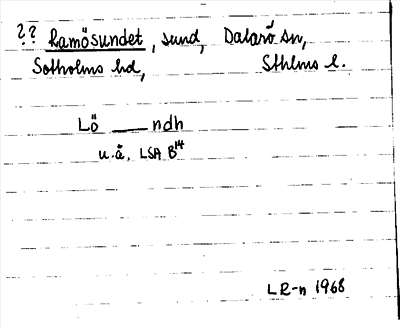 ?? Ramösundet, sund, Dalarö sn,
Sotholms hd, Sthlms l.
Lö ___ ndh
u.å. LSA B14
LR-n 1968